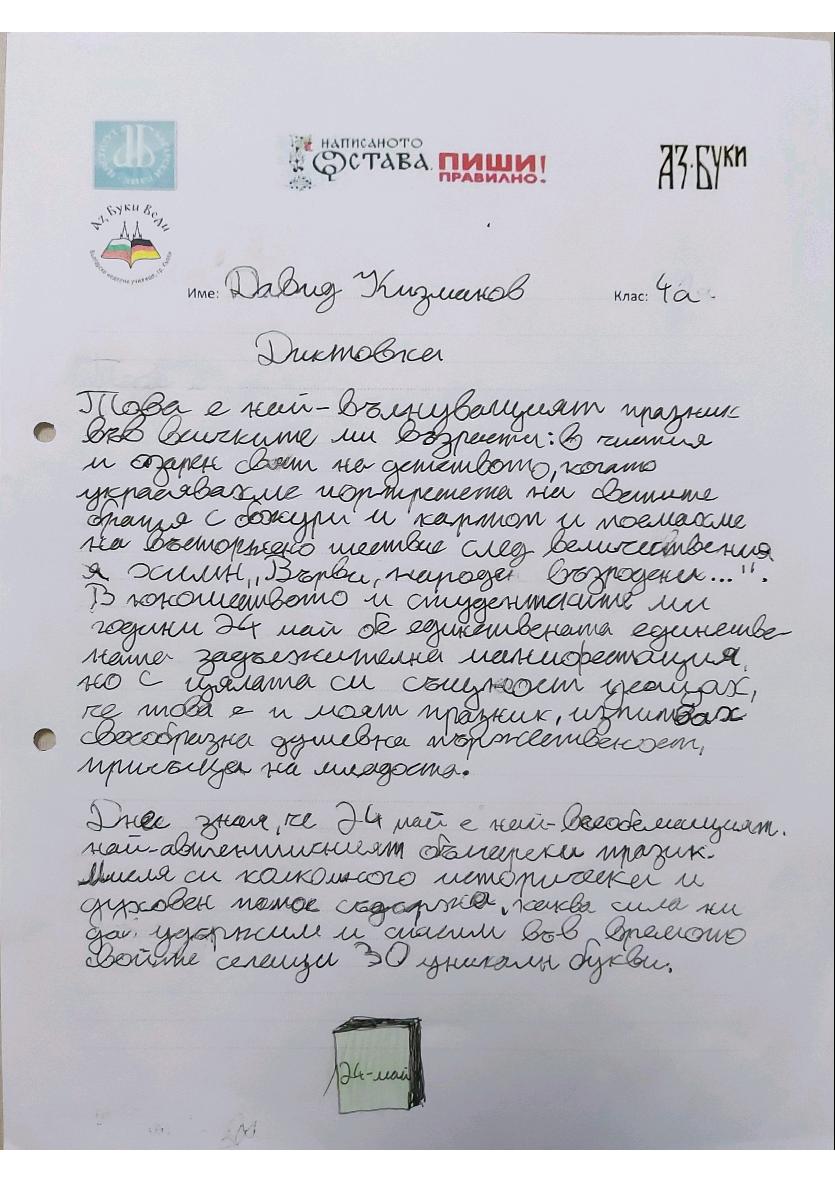 НАПИСАНОТО
ОСТАВА.
ПИШИ
ПРАВИЛНО!
АЗ·БУКИ
Аз, Буки, Веди
Име: Давид Кизманов
Клас: 4а
Диктовка
Това е най-вълнуващият празник
във всичките ми възрасти: в чистия
и озарен свят на детството, когато
украсявахме портрета на светите
братя с божури и картоп и поемахме
на въсторжено шествие след величествения
я химн „Върви, народе възродени...".
В юношеството и студентските ми
години 24 май бе единствената единстве-
ната задължителна манифестация,
но с цялата си същност усещах,
че това е и моят празник, изпитвах
своеобразна душевна тържественост,
присъща на младоста.
Днес зная, че 24 май е най-всеобемащият.
най-автентичният български празик.
Мисля си колко много исторически и
духовен съдържа, каква сила ни
да удържим и спасим във времето
своите 30 уникални букви.
24-май